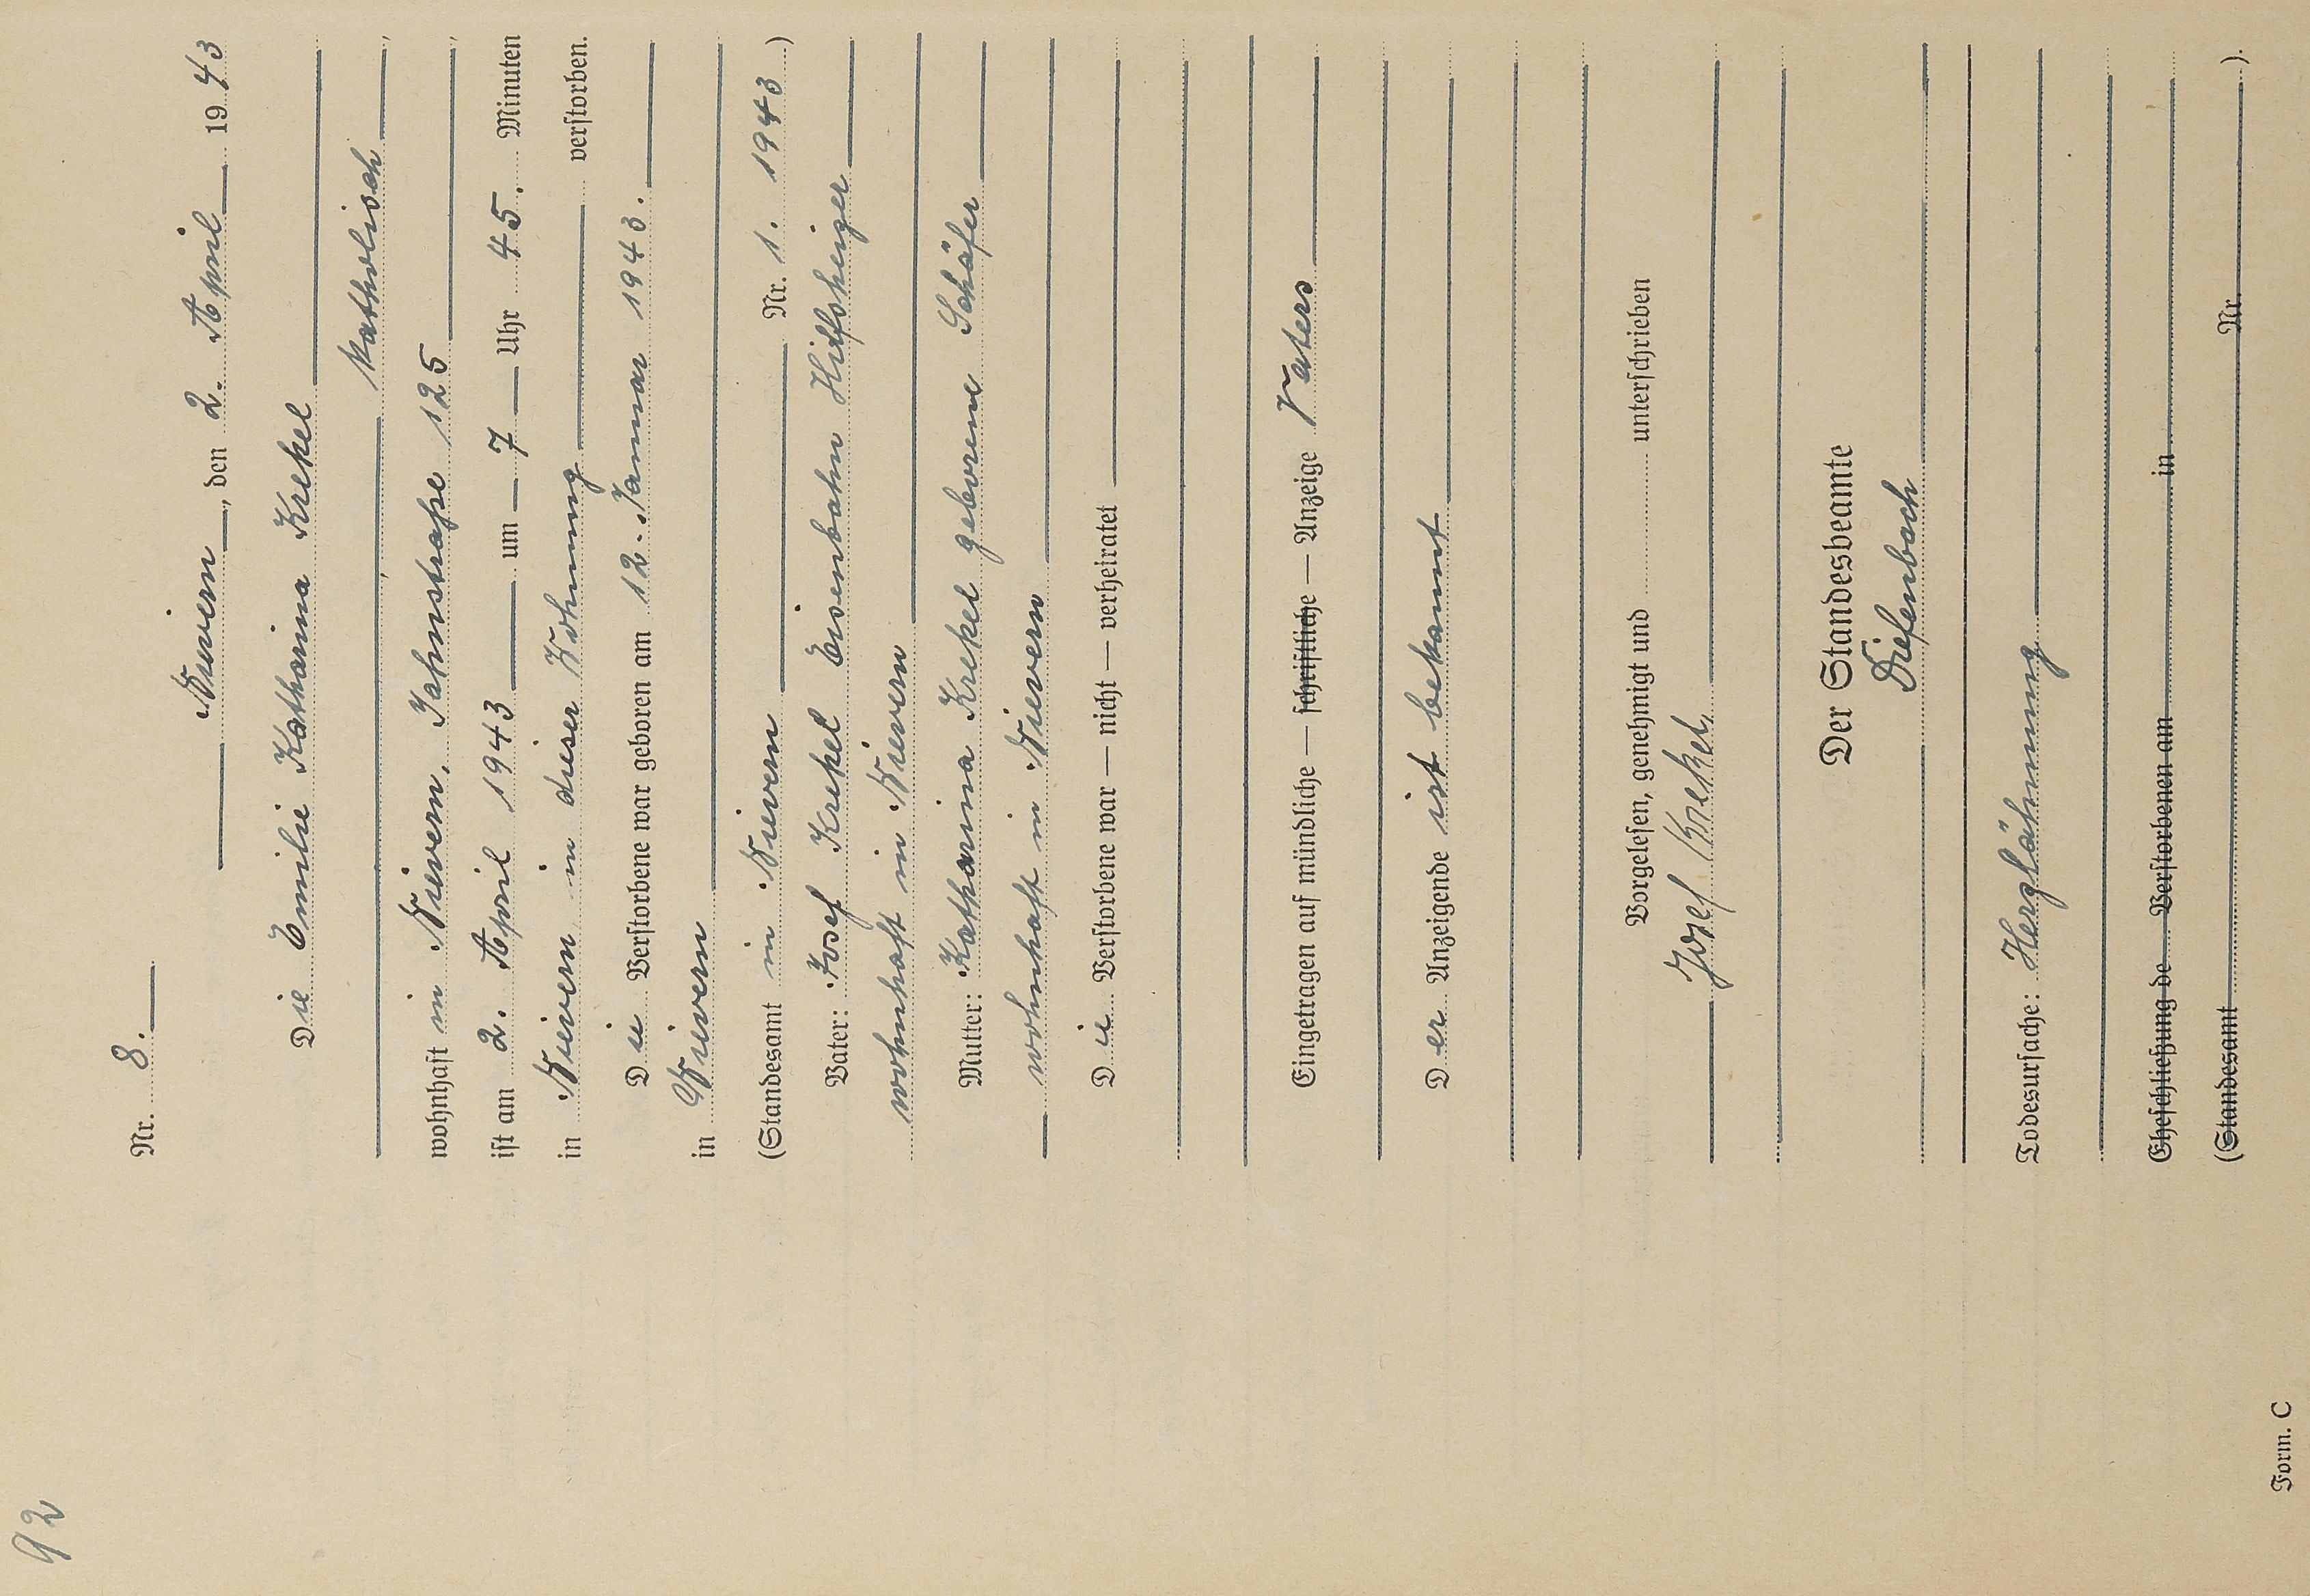 92
Nr. 8.
Nievern, den 2. April 1943
Die Emilie Katharina Krekel
katholisch,
wohnhaft in Nievern, Jahnstraße 125,
ist am 2. April 1943 um 7 Uhr 45. Minuten
in Nievern in dieser Wohnung verstorben.
Die Verstorbene war geboren am 12. Januar 1943.
in Nievern
(Standesamt in Nievern Nr. 1. 1943)
Vater: Josef Krekel Eisenbahn Hilfsheizer
wohnhaft in Nievern
Mutter: Katharina Krekel geborene Schäfer
wohnhaft in Nievern
Die Verstorbene war — nicht — verheiratet
Eingetragen auf mündliche — schriftliche — Anzeige Vaters
Der Anzeigende ist bekannt
Vorgelesen, genehmigt und unterschrieben
Josef Krekel
Der Standesbeamte
Diefenbach
Todesursache: Herzlähmung
Eheschließung de Verstorbenen am in
(Standesamt Nr. ).
Form. C